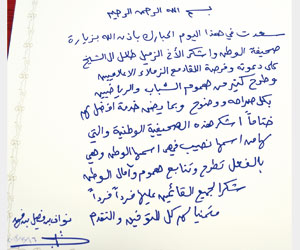 بسم الله الرحمن الرحيم
سعدت في هذا اليوم المبارك باذن الله بزيارة
صحيفة الوطن واشكر الأخ الزميل طلال آل الشيخ
على دعوته وفرصة اللقاء مع الزملاء الاعلاميين
وطرح كثير من هموم الشباب والرياضيين
بكل صراحة ووضوح وبما يضمن خدمة افضل لهم
ختاماً اشكر هذه الصحيفة الوطنية والتي
لها من اسمها نصيب فهي اسمها الوطن وهي
بالفعل تطرح وتتابع هموم وآمال الوطن
شكراً لجميع القائمين عليها فرداً فرداً
متمنياً لهم كل التوفيق والتقدم
نواف بن فيصل بن فهد